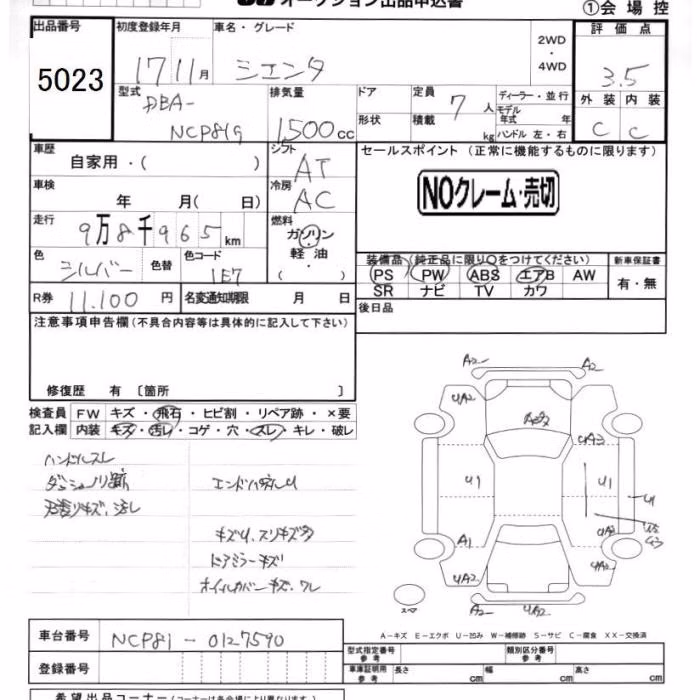 オークション出品申込書
①会場控
出品番号 初度登録年月 車名・グレード 評価点
5023 17 11月 シエンタ 2WD・4WD 3.5
型式 排気量 ドア 定員 7人 ディーラー・並行 外装 内装
DBA- モデル年式 年
NCP81G 1500cc 形状 積載 kg ハンドル 左・右 C C
車歴 自家用・( ) シフト AT セールスポイント (正常に機能するものに限ります)
車検 年 月( 日) 冷房 AC NOクレーム・売切
走行 9万8千965km 燃料 ガソリン・軽油・( )
色 シルバー 色替 色コード 1E7
装備品(純正品に限り○をつけてください) 新車保証書
PS PW ABS エアB AW 有・無
SR ナビ TV カワ
R券 11.100円 名変通知期限 月 日 後日品
注意事項申告欄(不具合内容等は具体的に記入して下さい)
修復歴 有 〔箇所 〕
検査員 FW キズ・飛石・ヒビ割・リペア跡・×要
記入欄 内装 キズ・汚レ・コゲ・穴・スレ・キレ・破レ
ハンドルスレ
ダッシュノリ跡
内張りキズ、汚レ
キズU、スリキズ多
ドアミラーキズ
A2 A2
UA2 A2
UA3
U1 U1 U1
A1 UA2
UA2 UA2
A2 UA2
スマ
A-キズ E-エクボ U-凹み W-補修跡 S-サビ C-腐食 XX-交換済
車台番号 NCP81-0127590
登録番号
型式指定番号 参考 類別区分番号 参考
車庫証明用 参考 長さ cm 幅 cm 高さ cm
希望出品コーナー(コーナーは各会場により異なります)